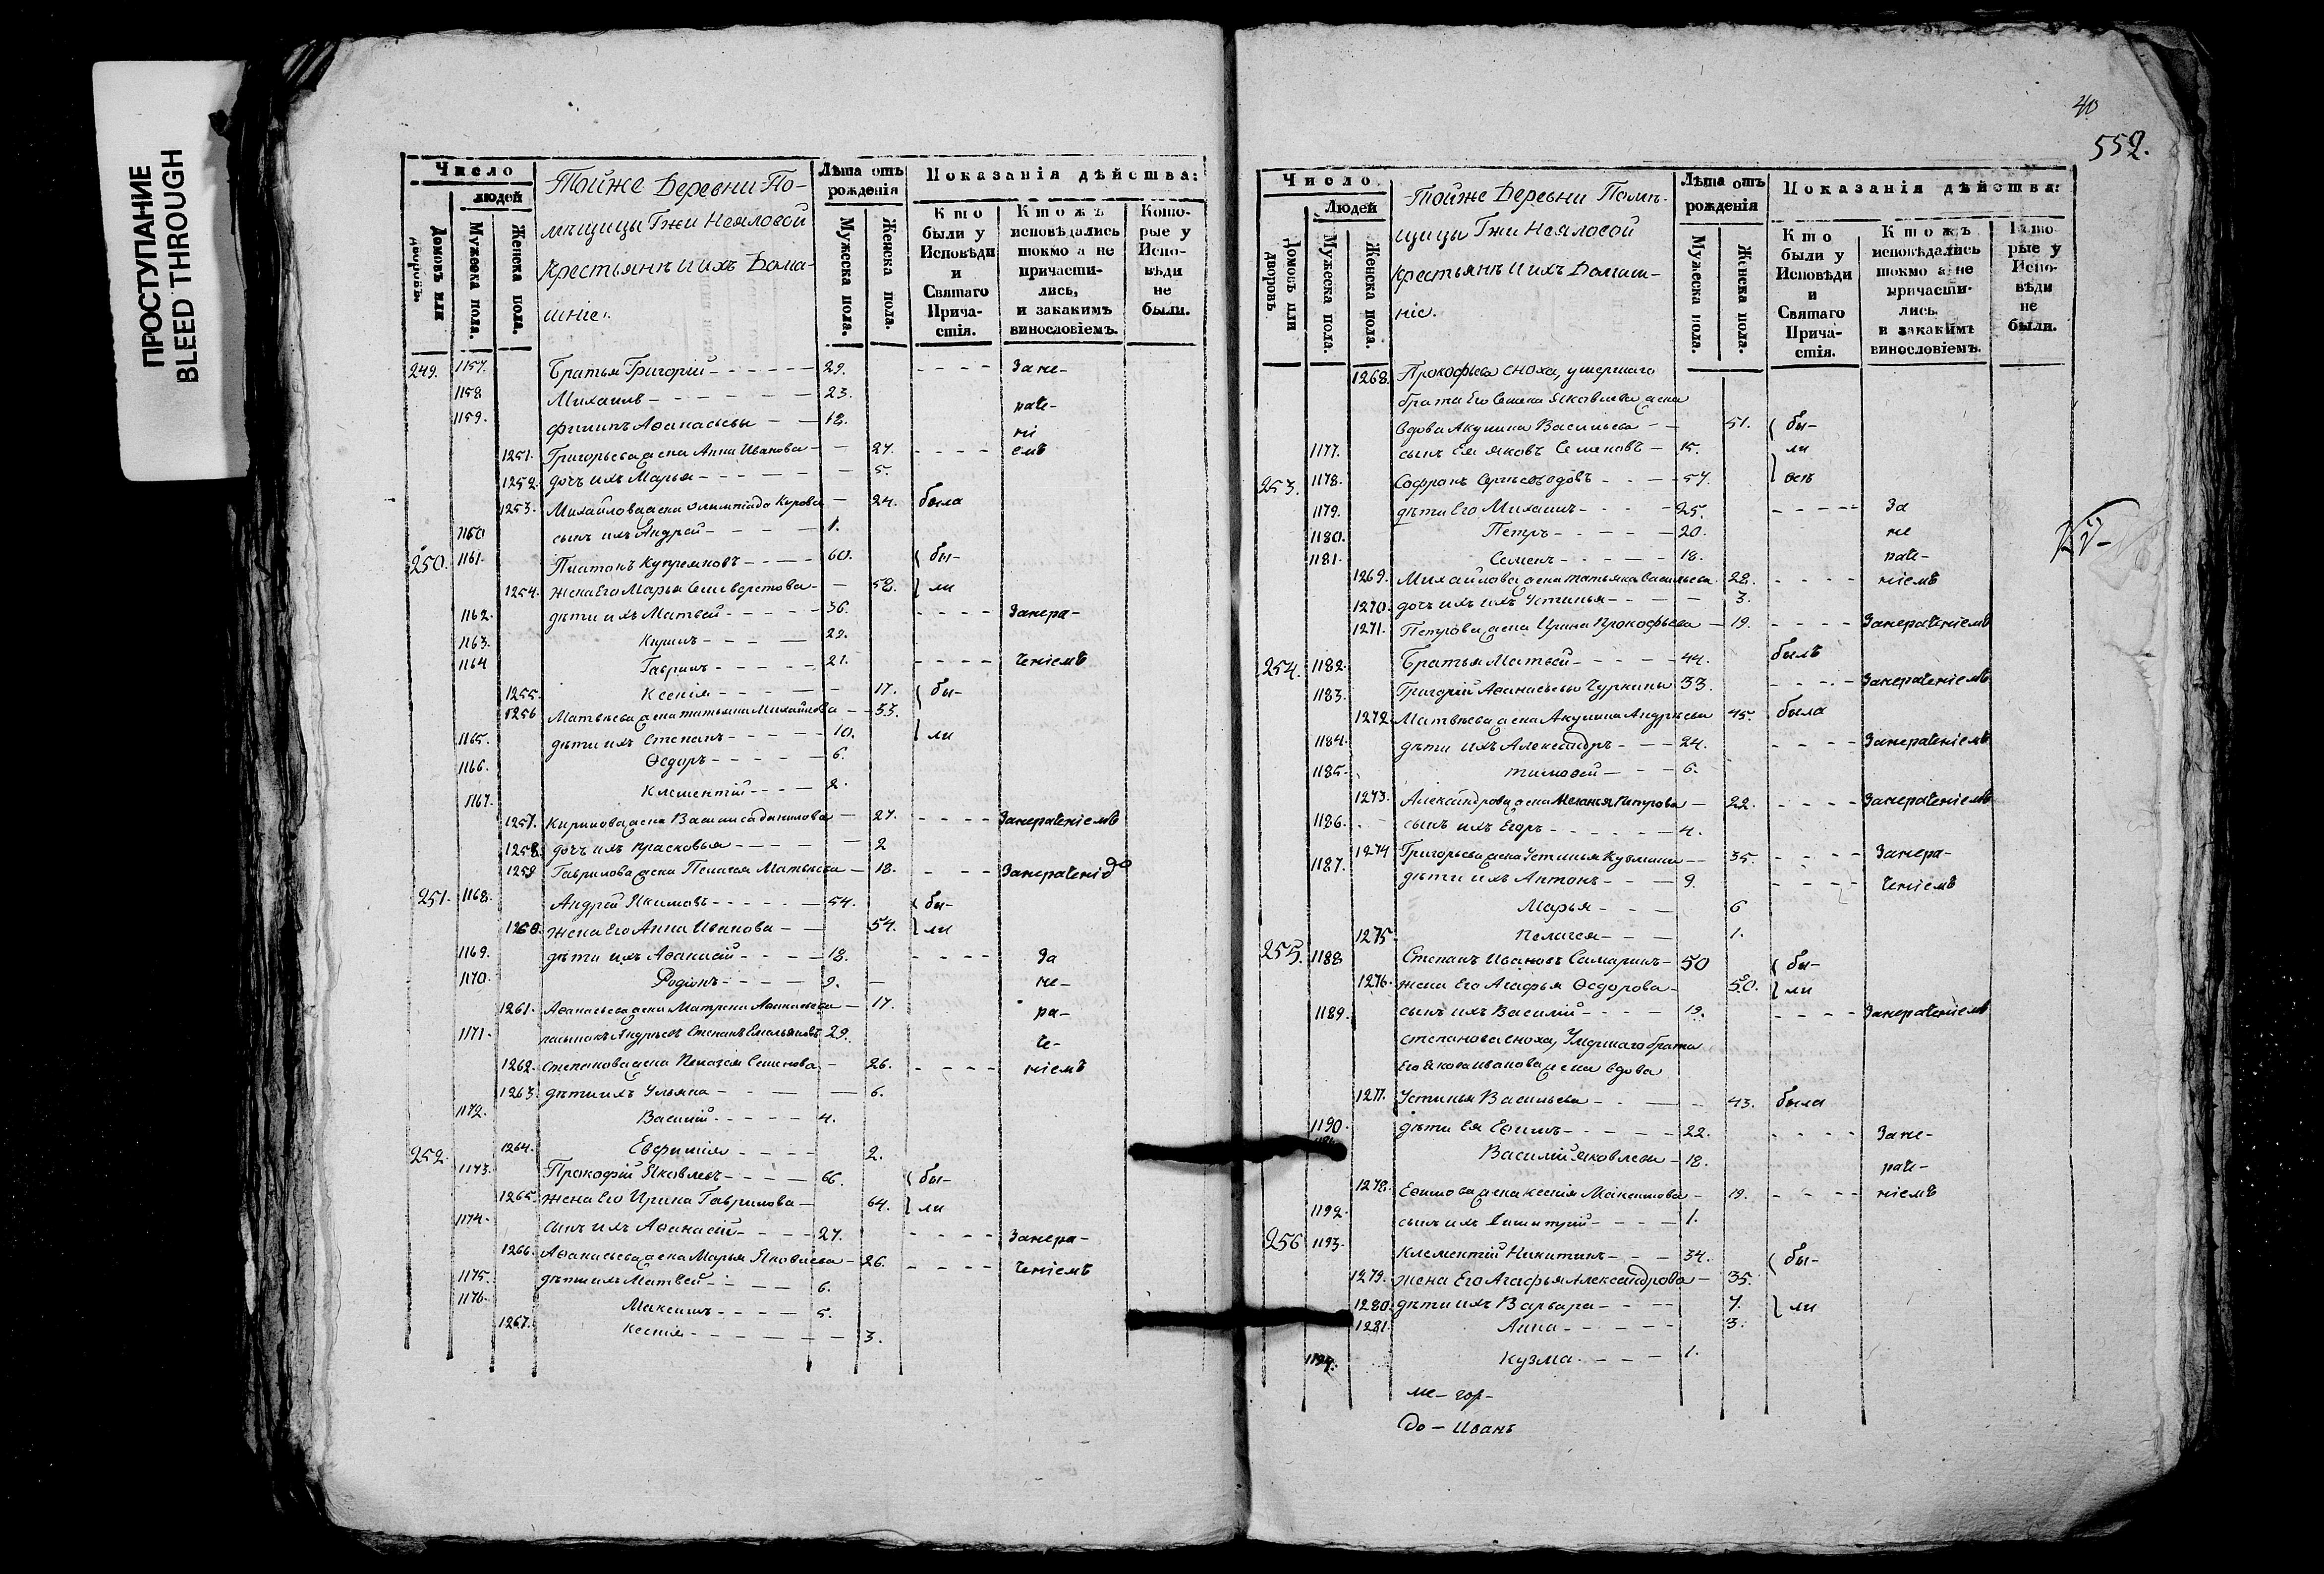 ПРОСТУПАНИЕ
BLEED THROUGH
Число
людей
Домовъ или дворовъ.
Мужеска пола.
Женска пола.
Тойже Деревни По-
мѣщицы Гжи Неяловой
Крестьянъ и ихъ Дома-
шніе.
Лѣта отъ рожденія
Мужеска пола.
Женска пола.
Показанія дѣйства:
Кто были у Исповѣди и Святаго Прича-стія.
Ктожъ исповѣдались токмо а не причасти-лись, и закакимъ винословіемъ.
Кото-рые у Испо-вѣди не были.
249. 1157. Братья Григорій - - - - - - 29. - - - - Зане-
1158 Михаилъ - - - - - - 23. раче-
1159. Филипъ Афанасьевы - - 18. ні
1251. Григорьева жена Анна Иванова - - 27. - - - - емъ
1252. дочь ихъ Марья - - - - - - 5.
1253. Михайлова жена Олимпіада - 24. была
1160 сынъ ихъ Андрей - - - - - 1.
250. 1161. Платонъ Купреяновъ - - - - 60. бы-
1254. жена Его Марья Селиверстова - - 58. ли
1162. дѣти ихъ Матвей - - - - - 36. - - - - Занера-
1163. Кирилъ - - - - 22.
1164 Гаврилъ - - - - - 21. - - - - ченіемъ
1255. Ксенія - - - - - 17. бы-
1256 Матвѣева жена татьяна Михайлова - - 33.
1165. дѣти ихъ Степанъ - - - - - 10. ли
1166. Ѳедоръ - - - - - 6.
1167. Клементій - - - - 2.
1257. Кирилова жена Василиса данилова - 27. - - - - Занераченіемъ
1258. дочь ихъ Прасковья - - - - - 2
1259 Гаврилова жена Пелагея Матвѣева - 18. - - - Занераченіемъ
251. 1168. Андрей Якимовъ - - - - - - 54. бы-
1260. Жена Его Анна Иванова - - 54. ли
1169. дѣти ихъ Аѳанасій - - - - - 18. - - - - За
1170. Родіонъ - - - - - 9. - не-
1261. Аѳанасьева жена Матрена - 17. ра-
1171. Андреевъ Степанъ Емельяновъ 29. че-
1262. Степанова жена Пелагея Семенова - 26. - - - - ніемъ
1263. дѣти ихъ Ульяна - - - - 6.
1172. Василій - - - - - 4.
1264. Евфимія - - - - 2.
252. 1173. Прокофій Яковлевъ - - - - 66. бы-
1265. жена Его Ирина Гаврилова - 64. ли
1174. сынъ ихъ Аѳанасій - - - - - 27. - - - - Занера-
1266. Аѳанасьева жена Марья Яковлева - 26. - - - - ченіемъ
1175. дѣти ихъ Матвей - - - - 6.
1176. Максимъ - - - - 5.
1267. Ксенія - - - - - - - 3.
552.
Число
Людей
Домовъ или дворовъ
Мужеска пола.
Женска пола.
Тойже Деревни Помѣ-
щицы Гжи Неяловой
Крестьянъ и ихъ Домаш-
ніе.
Лѣта отъ рожденія
Мужеска пола.
Женска пола.
Показанія дѣйства:
Кто были у Исповѣди и Святаго Прича-стія.
Ктожъ исповѣдались токмо а не причасти-лись. и закакимъ винословіемъ.
Кото-рые у Испо-вѣди не были.
1268. Прокофьева сноха, умершаго
брата Его Семена Яковлева жена
вдова Акулина Васильева - - 51. бы-
1177. сынъ Ея Яковъ Семеновъ - 15. ли
253. 1178. Софронъ - - - 57. всѣ
1179. дѣти Его Михаилъ - - - - 25. - - - - - За
1180. Петръ - - - - - 20. не
1181. Семенъ - - - - - 18. раче-
1269. Михайлова жена татьяна Васильева. 28. - - - - ніемъ
1270. дочь ихъ Устинья - - - - 3.
1271. Петрова жена Ирина Прокофьева - 19. - - - - Занераченіемъ
254. 1182. Братья Матвей - - - - - 44. былъ
1183. Григорій Аѳанасьевы Чуркины 33. - - - - Занераченіемъ
1272. Матвѣева жена Акулина Андреева 45. была
1184. дѣти ихъ Александръ - - - 24. - - - - Занераченіемъ
1185. тимоѳей - - - 6.
1273. Александрова жена Меланья Петрова - 22. - - - - Занераченіемъ
1186. сынъ ихъ Егоръ - - - - - - 4.
1274 Григорьева жена Устинья Кузмина - - 35. - - - - Занера-
1187. дѣти ихъ Антонъ - - - 9. - - - - ченіемъ
Марья - - - 6
1275. Пелагея - - - 1.
255. 1188 Степанъ Ивановъ Самаринъ - 50 бы-
1276. жена Его Агафья Ѳедорова - 50. ли
1189. сынъ ихъ Василій - - - - 19. - - - - Занераченіемъ
степанова сноха, Умершаго брата
Его Якова иванова жена вдова
1277. Устинья Васильева - - - - 43. была
1190. дѣти Ея Ефимъ - - - - - 22. - - - - Зане-
Василій Яковлевы - 18. раче-
1278. Ефимова жена Ксенія Максимова - 19. - - - - ніемъ
1192. сынъ ихъ Димитрій - - - - 1.
256 1193. Клементій Никитинъ - - - 34. бы-
1279. жена Его Агафья Александрова - 35.
1280. дѣти ихъ Варвара - - - - 7. ли
1281. Анна - - - - - - 3.
1194. Кузма - - - - 1.
До - Иванъ